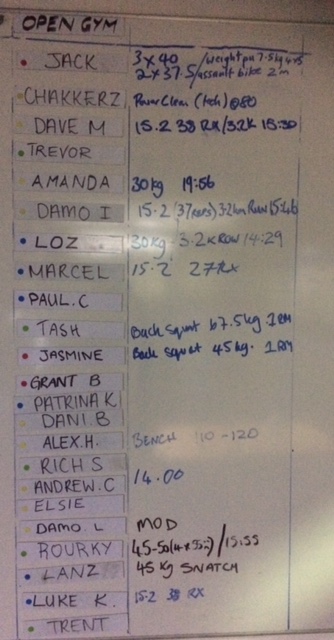 OPEN GYM
JACK 3 x 40 / weight pu 7.5kg
2 x 37.5 / assault bike 2m
CHAKKERZ Power Clean (tech) @80
DAVE M 15.2 38 RX / 3.2K 15:30
TREVOR
AMANDA 30kg 19:56
DAMO I 15.2 (37 reps) 3.2km Row 15:46
LOZ 30kg 3.2K ROW 14:29
MARCEL 15.2 27 RX
PAUL.C
TASH Back Squat 67.5kg 1RM
JASMINE Back squat 45kg. 1RM
GRANT B
PATRINA K
DANI.B
ALEX.H. BENCH 10-120
RICH S
ANDREW.C 14.00
ELSIE
DAMO L MOD
ROURKY 45-50 /15:55
LANZ 45 Kg SNATCH
LUKE K. 15.2 38 RX
TRENT